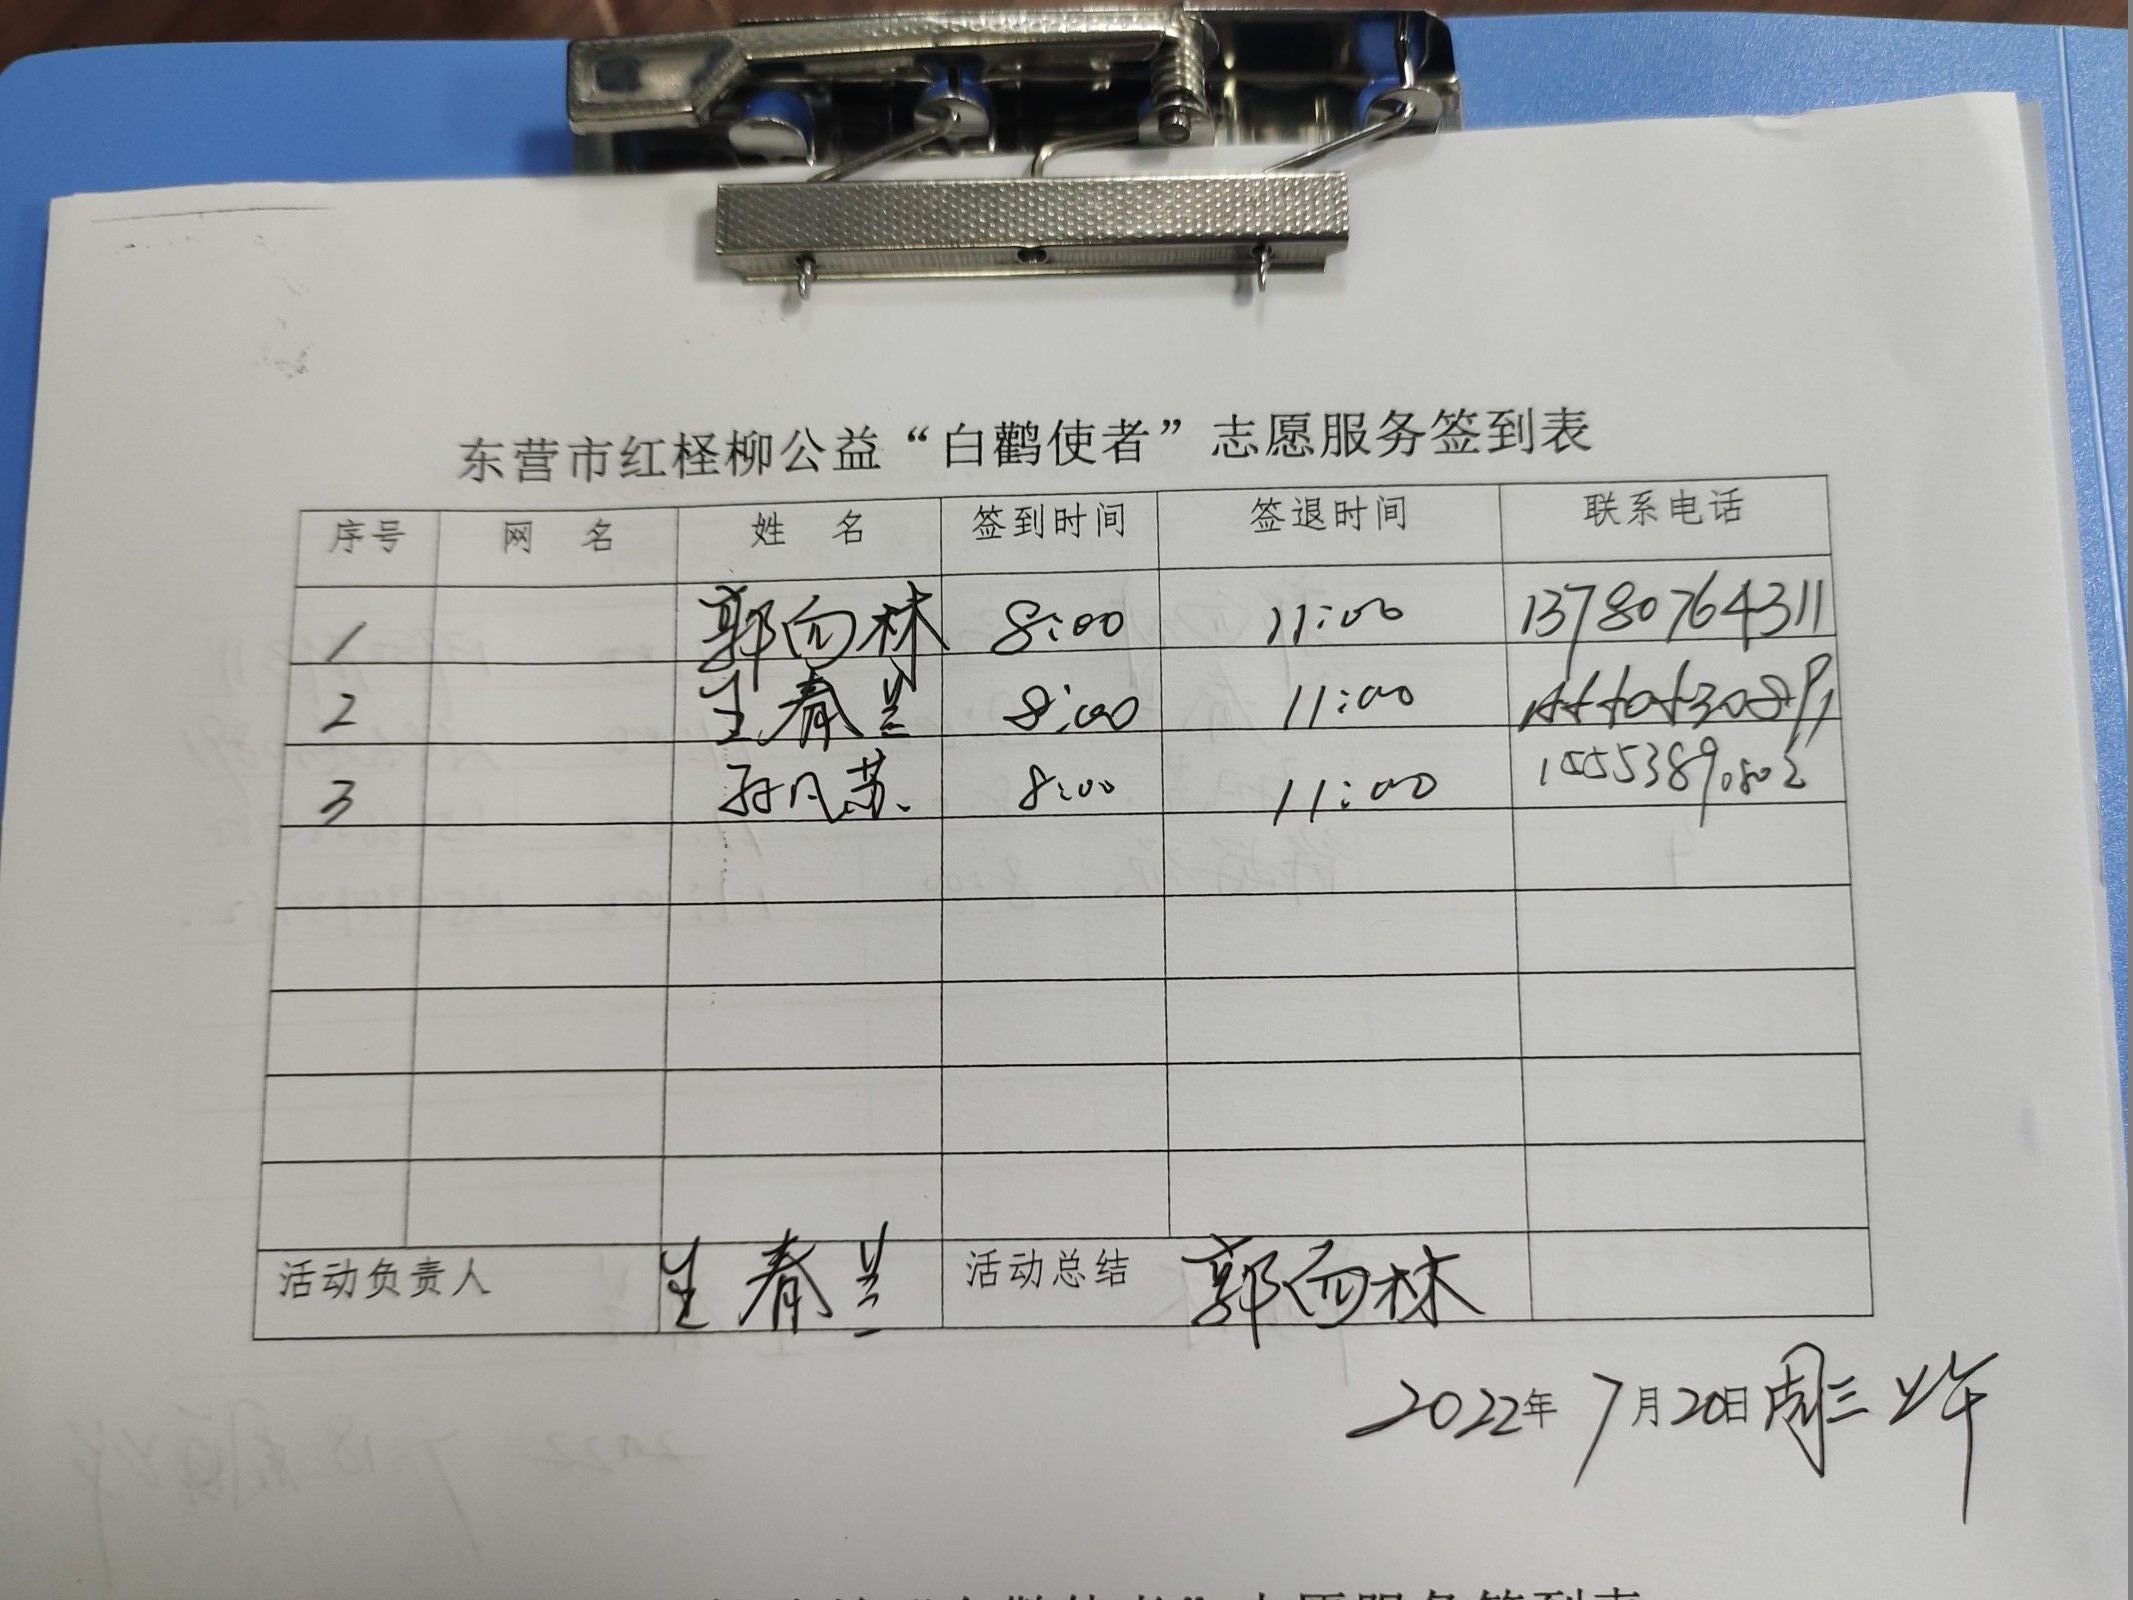 东营市红柽柳公益“白鹳使者”志愿服务签到表
序号 网 名 姓 名 签到时间 签退时间 联系电话
1 郭向林 8:00 11:00 13780764311
2 生春兰 8:00 11:00
3 孙凡苏 8:00 11:00
活动负责人 生春兰 活动总结 郭向林
2022年 7月20日 周三 上午